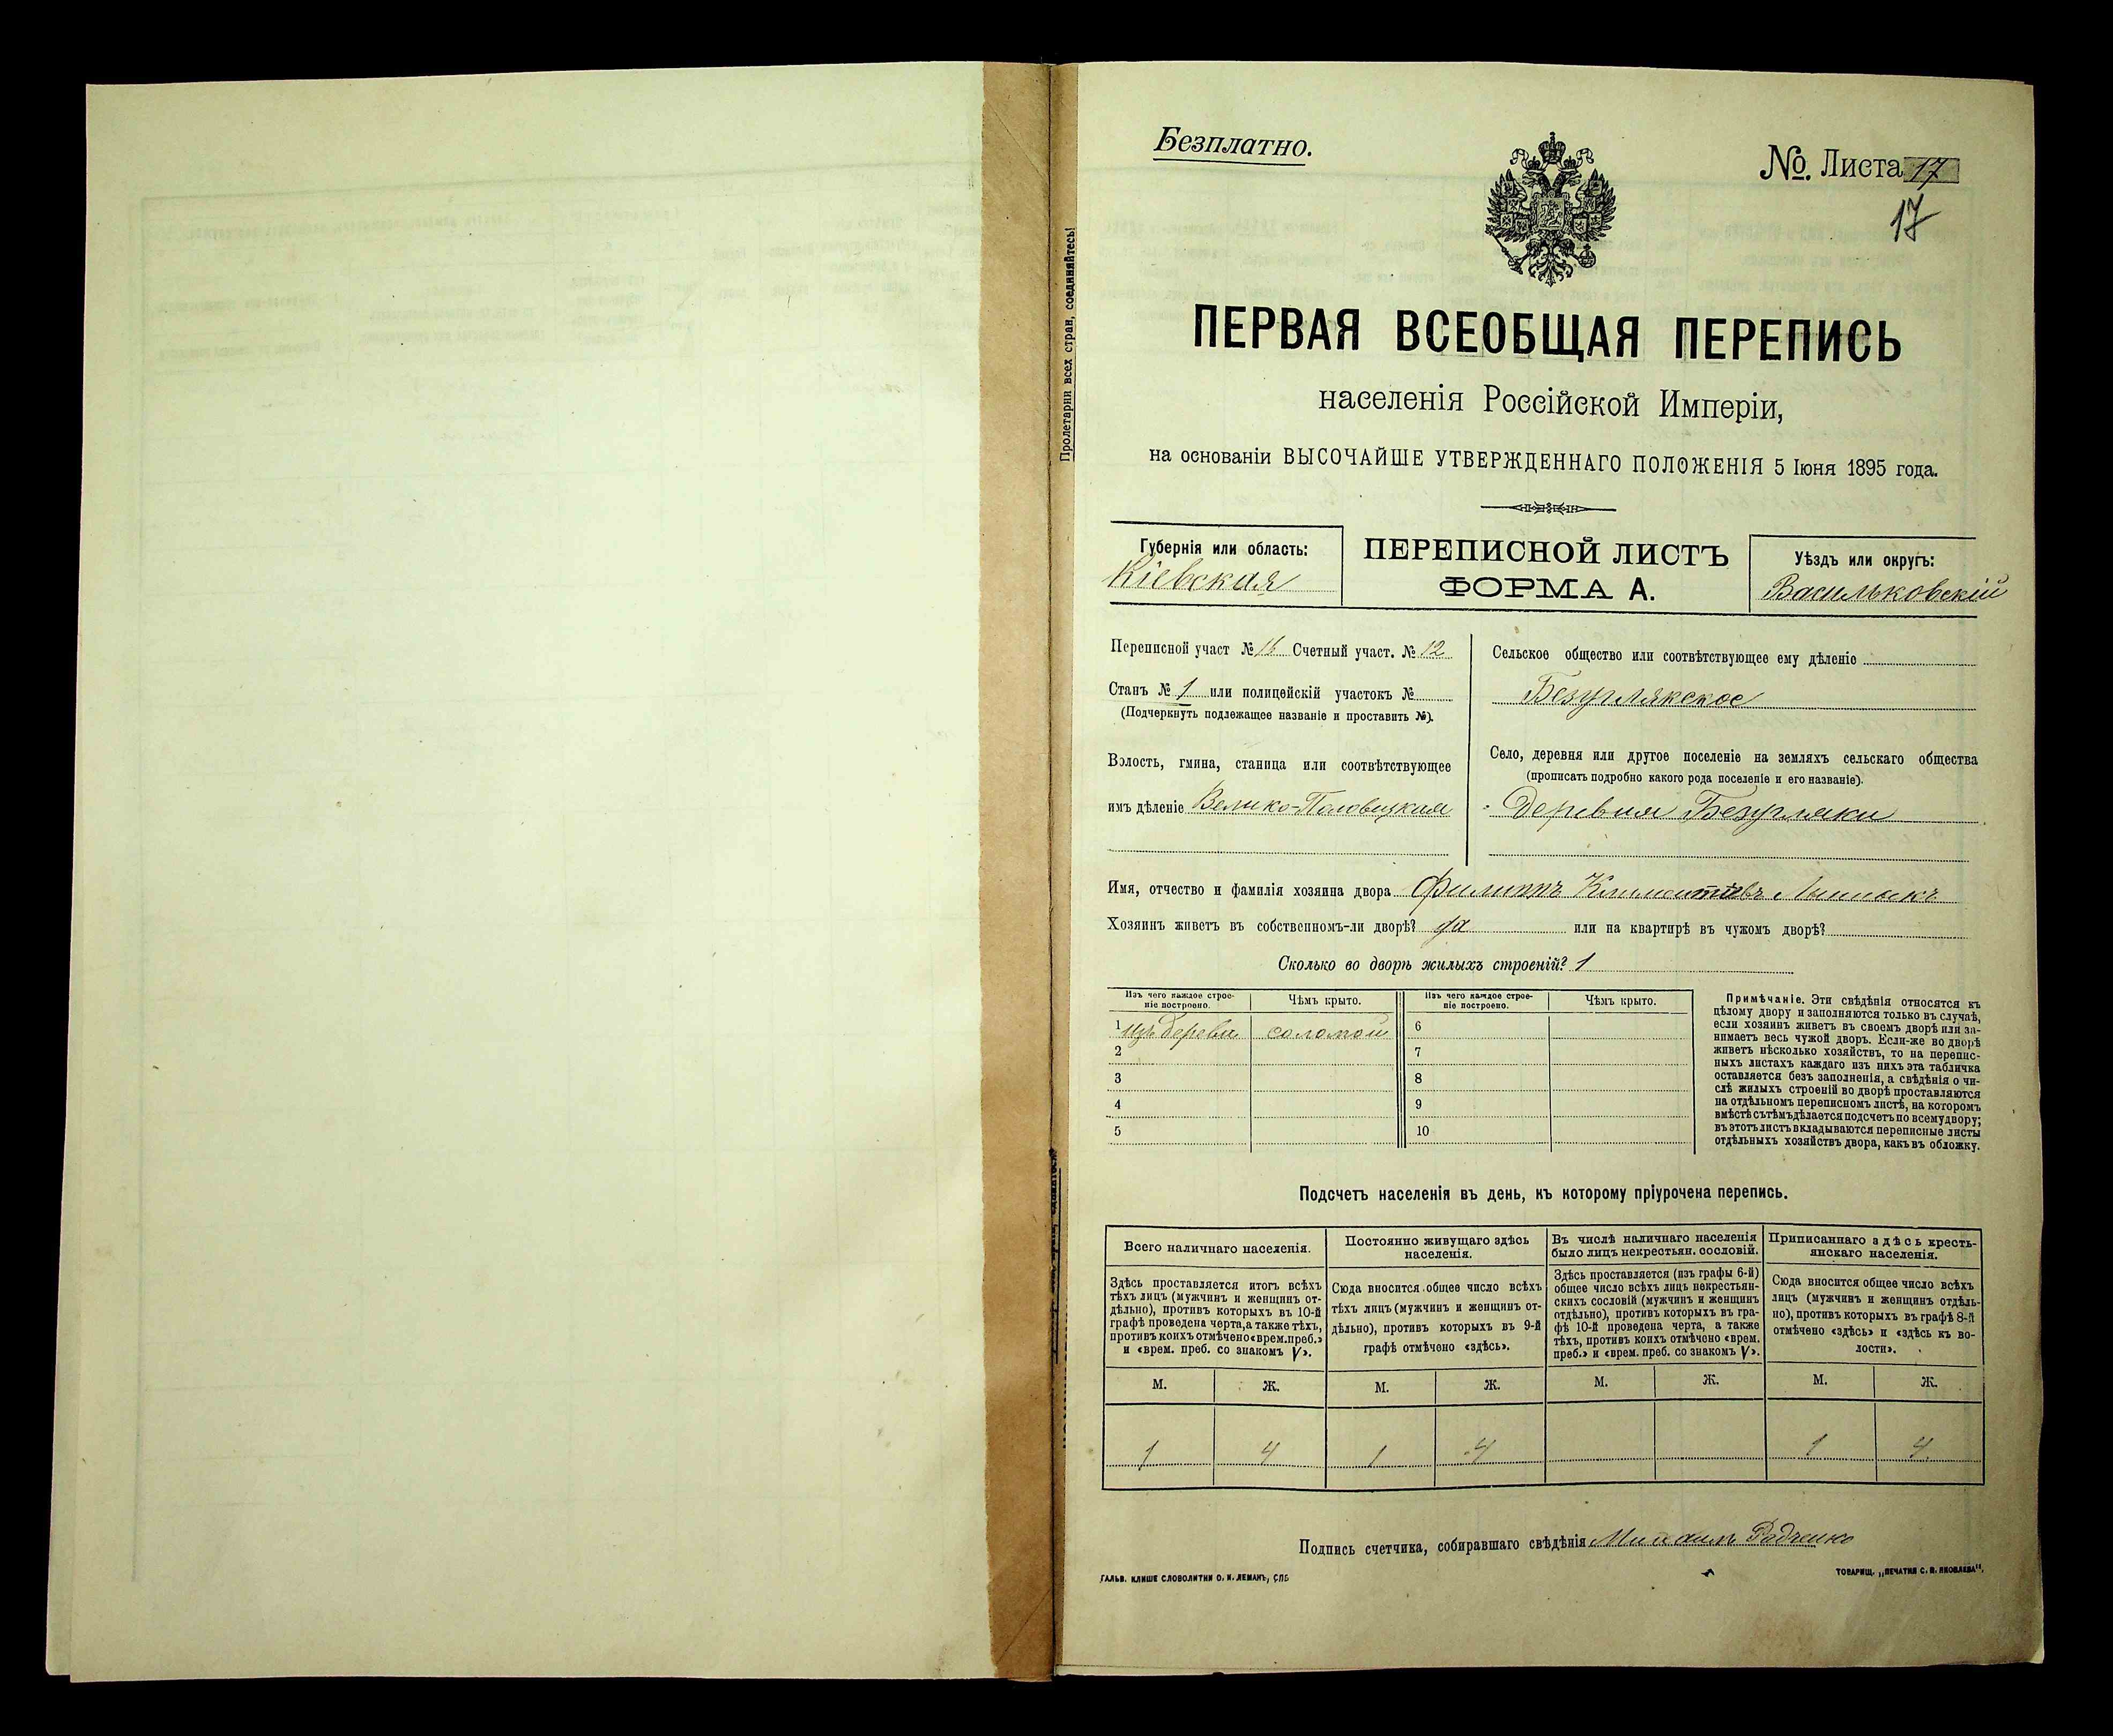 Безплатно.
№. Листа 17
17
Пролетарии всех стран, соединяйтесь!
ПЕРВАЯ ВСЕОБЩАЯ ПЕРЕПИСЬ
населенія Россійской Имперіи,
на основаніи ВЫСОЧАЙШЕ УТВЕРЖДЕННАГО ПОЛОЖЕНІЯ 5 Іюня 1895 года.
Губернія или область:
Кіевская
ПЕРЕПИСНОЙ ЛИСТЪ
ФОРМА А.
Уѣздъ или округъ:
Васильковскій
Переписной участ № 16 Счетный участ. № 12
Станъ № 1 или полицейскій участокъ №
(Подчеркнуть подлежащее названіе и проставить №).
Волость, гмина, станица или соотвѣтствующее
имъ дѣленіе Велико-Половецкая
Сельское общество или соотвѣтствующее ему дѣленіе
Безуглякское
Село, деревня или другое поселеніе на земляхъ сельскаго общества
(прописать подробно какого рода поселеніе и его названіе).
Деревня Безугляки
Имя, отчество и фамилія хозяина двора Филиппъ Климентіевъ
Хозяинъ живетъ въ собственномъ-ли дворѣ? да или на квартирѣ въ чужомъ дворѣ?
Сколько во дворѣ жилыхъ строеній? 1
Изъ чего каждое строе-
ніе построено.
Чѣмъ крыто.
Изъ чего каждое строе-
ніе построено.
Чѣмъ крыто.
1 изъ дерева соломой 6
2 7
3 8
4 9
5 10
Примѣчаніе. Эти свѣдѣнія относятся къ
цѣлому двору и заполняются только въ случаѣ,
если хозяинъ живетъ въ своемъ дворѣ или за-
нимаетъ весь чужой дворъ. Если-же во дворѣ
живетъ нѣсколько хозяйствъ, то на перепис-
ныхъ листахъ каждаго изъ нихъ эта табличка
оставляется безъ заполненія, а свѣдѣнія о чи-
слѣ жилыхъ строеній во дворѣ проставляются
на отдѣльномъ переписномъ листѣ, на которомъ
вмѣстѣ съ тѣмъ дѣлается подсчетъ по всему двору;
въ этотъ листъ вкладываются переписные листы
отдѣльныхъ хозяйствъ двора, какъ въ обложку.
Подсчетъ населенія въ день, къ которому пріурочена перепись.
Всего наличнаго населенія.
Здѣсь проставляется итогъ всѣхъ
тѣхъ лицъ (мужчинъ и женщинъ от-
дѣльно), противъ которыхъ въ 10-й
графѣ проведена черта, а также тѣхъ,
противъ коихъ отмѣчено «врем. преб.»
и «врем. преб. со знакомъ V».
Постоянно живущаго здѣсь
населенія.
Сюда вносится общее число всѣхъ
тѣхъ лицъ (мужчинъ и женщинъ от-
дѣльно), противъ которыхъ въ 9-й
графѣ отмѣчено «здѣсь».
Въ числѣ наличнаго населенія
было лицъ некрестьян. сословій.
Здѣсь проставляется (изъ графы 6-й)
общее число всѣхъ лицъ некрестьян-
скихъ сословій (мужчинъ и женщинъ
отдѣльно), противъ которыхъ въ гра-
фѣ 10-й проведена черта, а также
тѣхъ, противъ коихъ отмѣчено «врем.
преб.» и «врем. преб. со знакомъ V».
Приписаннаго здѣсь кресть-
янскаго населенія.
Сюда вносится общее число всѣхъ
лицъ (мужчинъ и женщинъ отдѣль-
но), противъ которыхъ въ графѣ 8-й
отмѣчено «здѣсь» и «здѣсь къ во-
лости».
М. Ж. М. Ж. М. Ж. М. Ж.
1 4 1 4 1 4
Подпись счетчика, собиравшаго свѣдѣнія Михаилъ Радченко
ГАЛЬВ. КЛИШЕ СЛОВОЛИТНИ О. И. ЛЕМАНЪ, СПБ
ТОВАРИЩ. „ПЕЧАТНЯ С. П. ЯКОВЛЕВА".